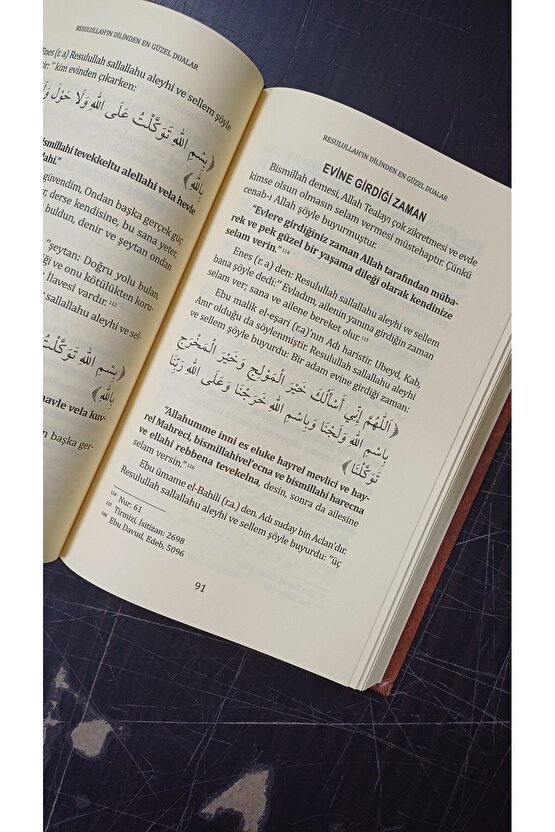 RESULULLAH'IN DİLİNDEN EN GÜZEL DUALAR
Enes (r.a) Resulullah sallallahu aleyhi ve sellem şöyle
"kim evinden çıkarken:
بِسْمِ اللَّهِ تَوَكَّلْتُ عَلَى اللَّهِ وَلَا حَوْلَ
بِاللَّهِ﴾
tevekkeltu alellahi vela havle
güvendim, Ondan başka gerçek güç
derse kendisine, bu sana yeter,
buldun, denir ve şeytan ondan
"şeytan: Doğru yolu bulan,
ve onu kötülükten koru-
İlavesi vardır.
sallallahu aleyhi ve sel-
﴿بِسْمِ اللَّهِ تَوَكَّلْتُ
بِاللَّهِ﴾
vela kuv-
başka ger-
RESULULLAH'IN DİLİNDEN EN GÜZEL DUALAR
EVİNE GİRDİĞİ ZAMAN
Bismillah demesi, Allah Tealayı çok zikretmesi ve evde
kimse olsun olmasın selam vermesi müstehaptır. Çünkü
cenab-ı Allah şöyle buyurmuştur.
"Evlere girdiğiniz zaman Allah tarafından müba-
rek ve pek güzel bir yaşama dileği olarak kendinize
selam verin." 114
Enes (r.a) den: Resulullah sallallahu aleyhi ve sellem
bana şöyle dedi:" Evladım, ailenin yanına girdiğin zaman
selam ver; sana ve ailene bereket olur. 115
Ebu malik el-eşari (r.a)'nın Adı haristir. Ubeyd, Kab,
Amr olduğu da söylenmiştir. Resulullah sallallahu aleyhi
ve sellem şöyle buyurdu: Bir adam evine girdiği zaman:
﴿اللَّهُمَّ إِنِّي أَسْأَلُكَ خَيْرَ الْمَوْلِجِ وَخَيْرَ الْمَخْرَجِ
بِسْمِ اللَّهِ وَلَجْنَا وَبِاسْمِ اللَّهِ خَرَجْنَا وَعَلَى اللَّهِ رَبِّنَا
تَوَكَّلْنَا﴾
"Allahumme inni es eluke hayrel mevlici ve hay-
rel Mahreci, bismillahivel'ecna ve bismillahi harecna
ve ellahi rebbena tevekelna, desin, sonra da ailesine
selam versin." 116
Ebu ümame el-Bahili (r.a.) den. Adı suday bin Aclan'dır.
Resulullah sallallahu aleyhi ve sellem şöyle buyurdu: "üç
114 Nur: 61
115 Tirmizi, İsitizan: 2698
116 Ebu Davud, Edeb, 5096
91